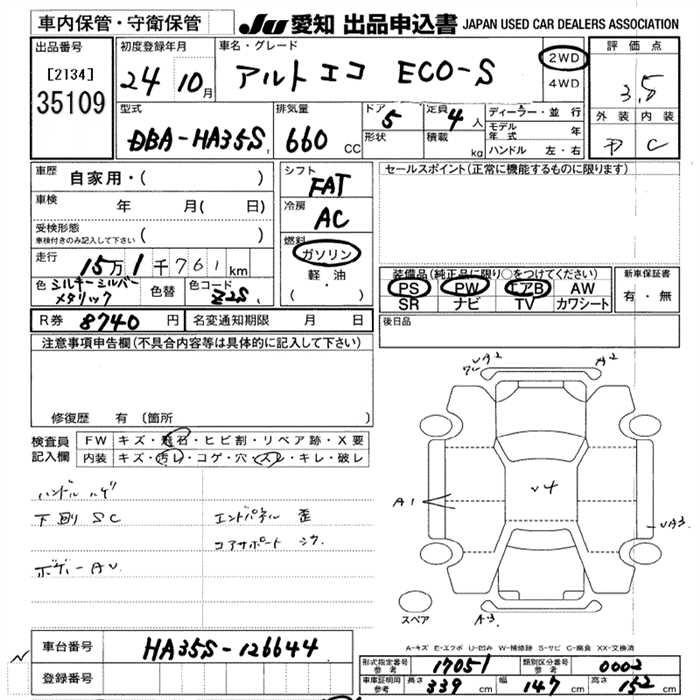 車内保管・守衛保管 JU 愛知 出品申込書 JAPAN USED CAR DEALERS ASSOCIATION
出品番号
[2134]
35109
初度登録年月
24 10月
車名・グレード
アルト エコ ECO-S
2WD
4WD
評価点
3.5
外装 内装
D C
型式
DBA-HA35S
排気量
660 CC
ドア
5
形状
定員
4人
積載 kg
ディーラー・並行
モデル年式 年
ハンドル 左・右
車歴
自家用・( )
車検
年 月( 日)
受検形態
車検付きのみ記入して下さい ( )
走行
15万1千761km
色 シルキーシルバーメタリック
色替
色コード
Z2S
シフト
FAT
冷房
AC
燃料
ガソリン
軽油
( ・ )
セールスポイント(正常に機能するものに限ります)
装備品(純正品に限り○をつけてください)
PS PW エアB AW
SR ナビ TV カワシート
新車保証書
有・無
後日品
R券 8740 円 名変通知期限 月 日
注意事項申告欄(不具合内容等は具体的に記入して下さい)
修復歴 有 (箇所
検査員記入欄
FW キズ・飛石・ヒビ割・リペア跡・X要
内装 キズ・汚レ・コゲ・穴・スレ・キレ・破レ
ハンドル ハゲ
下廻 SC
エンドパネル 歪
コアサポート
ボディーAU
U2
A2
A1
U4
UA3
A3
スペア
A-キズ E-エクボ U-凹み W-補修跡 S-サビ C-腐食 XX-交換済
車台番号 HA35S-126644
登録番号
形式指定番号 参考 17051 類別区分番号 参考 0002
車庫証明用 参考 長さ 339 cm 幅 147 cm 高さ 152 cm